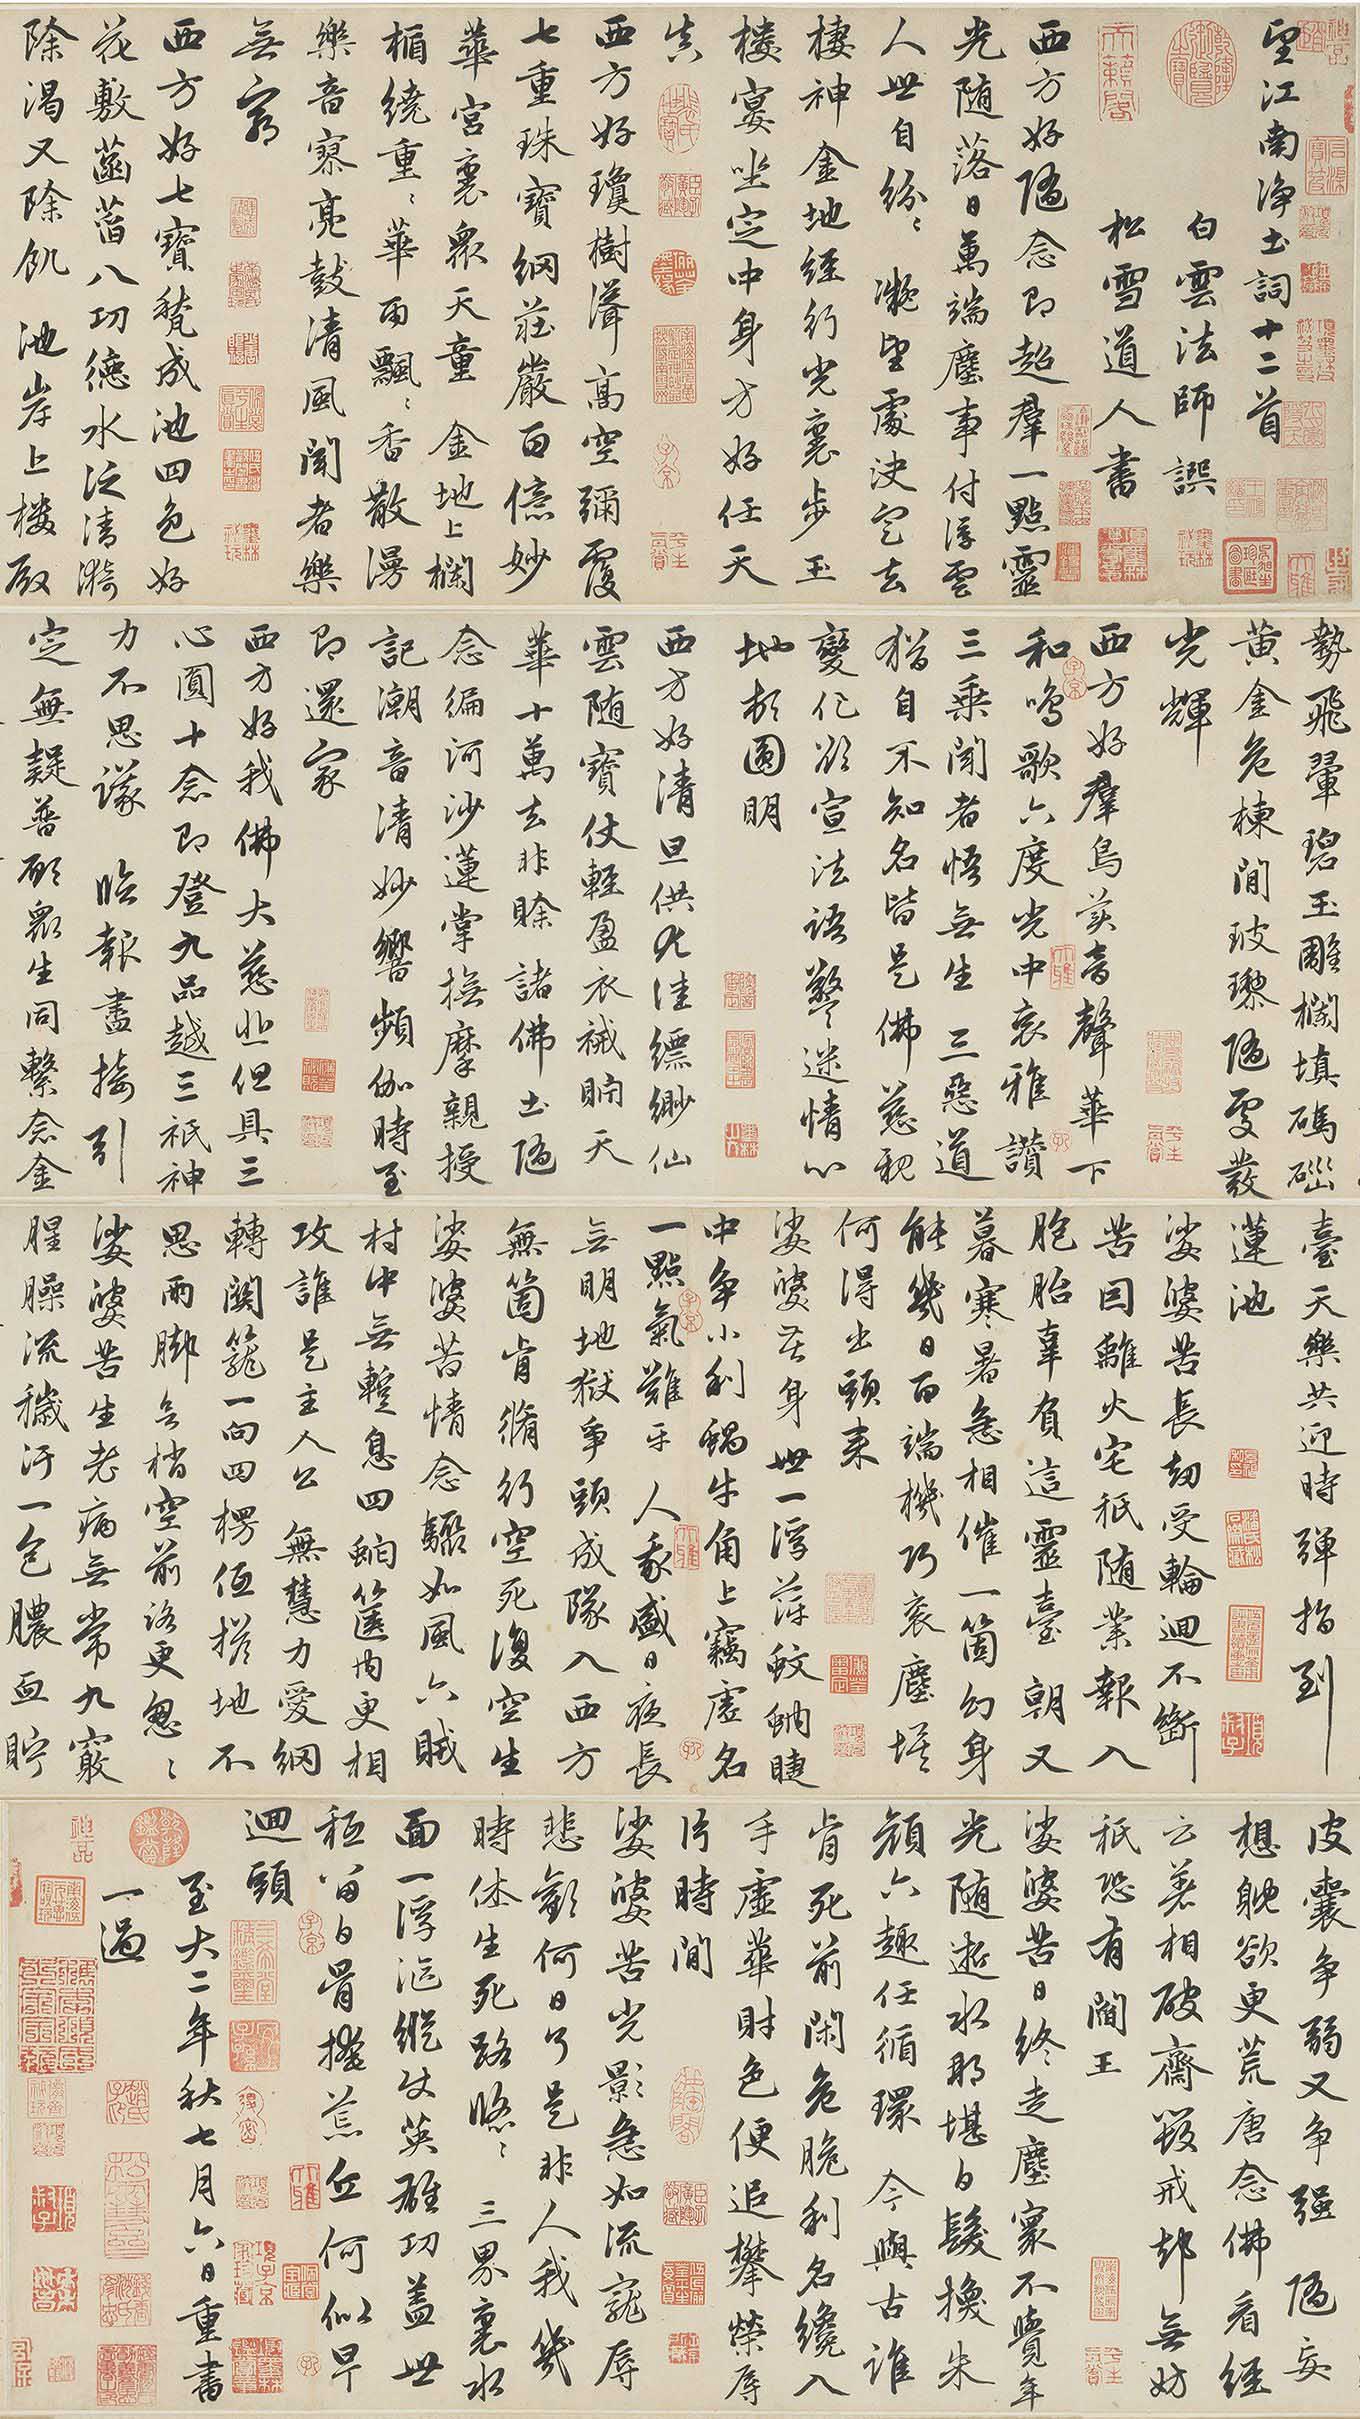 望江南淨土詞十二首
白雲法師譔
松雪道人書
西方好隨念即超羣一點靈
光随落日萬端塵事付浮雲
人世自紛〻 凝望處決定去
棲神金地經行光裏步玉
樓宴坐定中身方好任天
真
西方好瓊樹聳高空彌覆
七重珠寶網莊嚴百億妙
華宮裏衆天童 金地上欄
楯繞重〻華雨飄〻香散漫
樂音寥亮鼓清風聞者樂
無窮
西方好七寶甃成池四色好
花敷菡萏八功德水泛清漪
除渴又除飢 池岸上樓殿
勢飛翬碧玉雕欄填碼碯
黄金危棟間玻瓈隨處發
光輝
西方好羣鳥美音聲華下
和鳴歌六度光中哀雅讃
三乗聞者悟無生 三惡道
猶自不知名皆是佛慈親
變化欲宣法語警迷情心
地頓圓明
西方好清旦供尤佳縹緲仙
雲随寶仗輕盈衣裓眗天
華十萬去非賒 諸佛土隨
念徧河沙蓮掌撫摩親授
記潮音清妙響頻伽時至
即還家
西方好我佛大慈悲但具三
心圓十念即登九品越三祇神
力不思議 臨報盡接引
定無疑普願衆生同繫念金
臺天樂共迎時彈指到
蓮池
娑婆苦長劫受輪迴不斷
苦因離火宅祇随業報入
胞胎辜負這靈臺 朝又
暮寒暑急相催一箇幻身
能幾日百端機巧衮塵埃
何得出頭来
娑婆苦身世一浮萍蚊蚋睫
中争小利蝸牛角上竊虚名
一點氣難平 人我盛日夜長
無明地獄争頭成隊入西方
無箇肯脩行空死復空生
娑婆苦情念驟如風六賊
村中無蹔息四蛇篋内更相
攻誰是主人公 無慧力愛網
轉関籠一向四楞低搭地不
思兩脚無梢空前路更怱〻
娑婆苦生老病無常九竅
腥臊流穢汙一包膿血貯
皮囊争弱又争强 隨妄
想躭欲更荒唐念佛看經
云著相破齋毀戒却無妨
祇恐有閻王
娑婆苦日終走塵寰不覺年
光随逝水那堪白髮換朱
顔六趣任循環 今與古誰
肯死前閑危脆利名纔入
手虚華財色便追攀榮辱
片時間
娑婆苦光影急如流寵辱
悲歡何日了是非人我幾
時休生死路悠〻 三界裏水
面一浮漚縱使英雄功盖世
秖留白骨掩荒丘何似早
迴頭
至大二年秋七月六日重書
一過